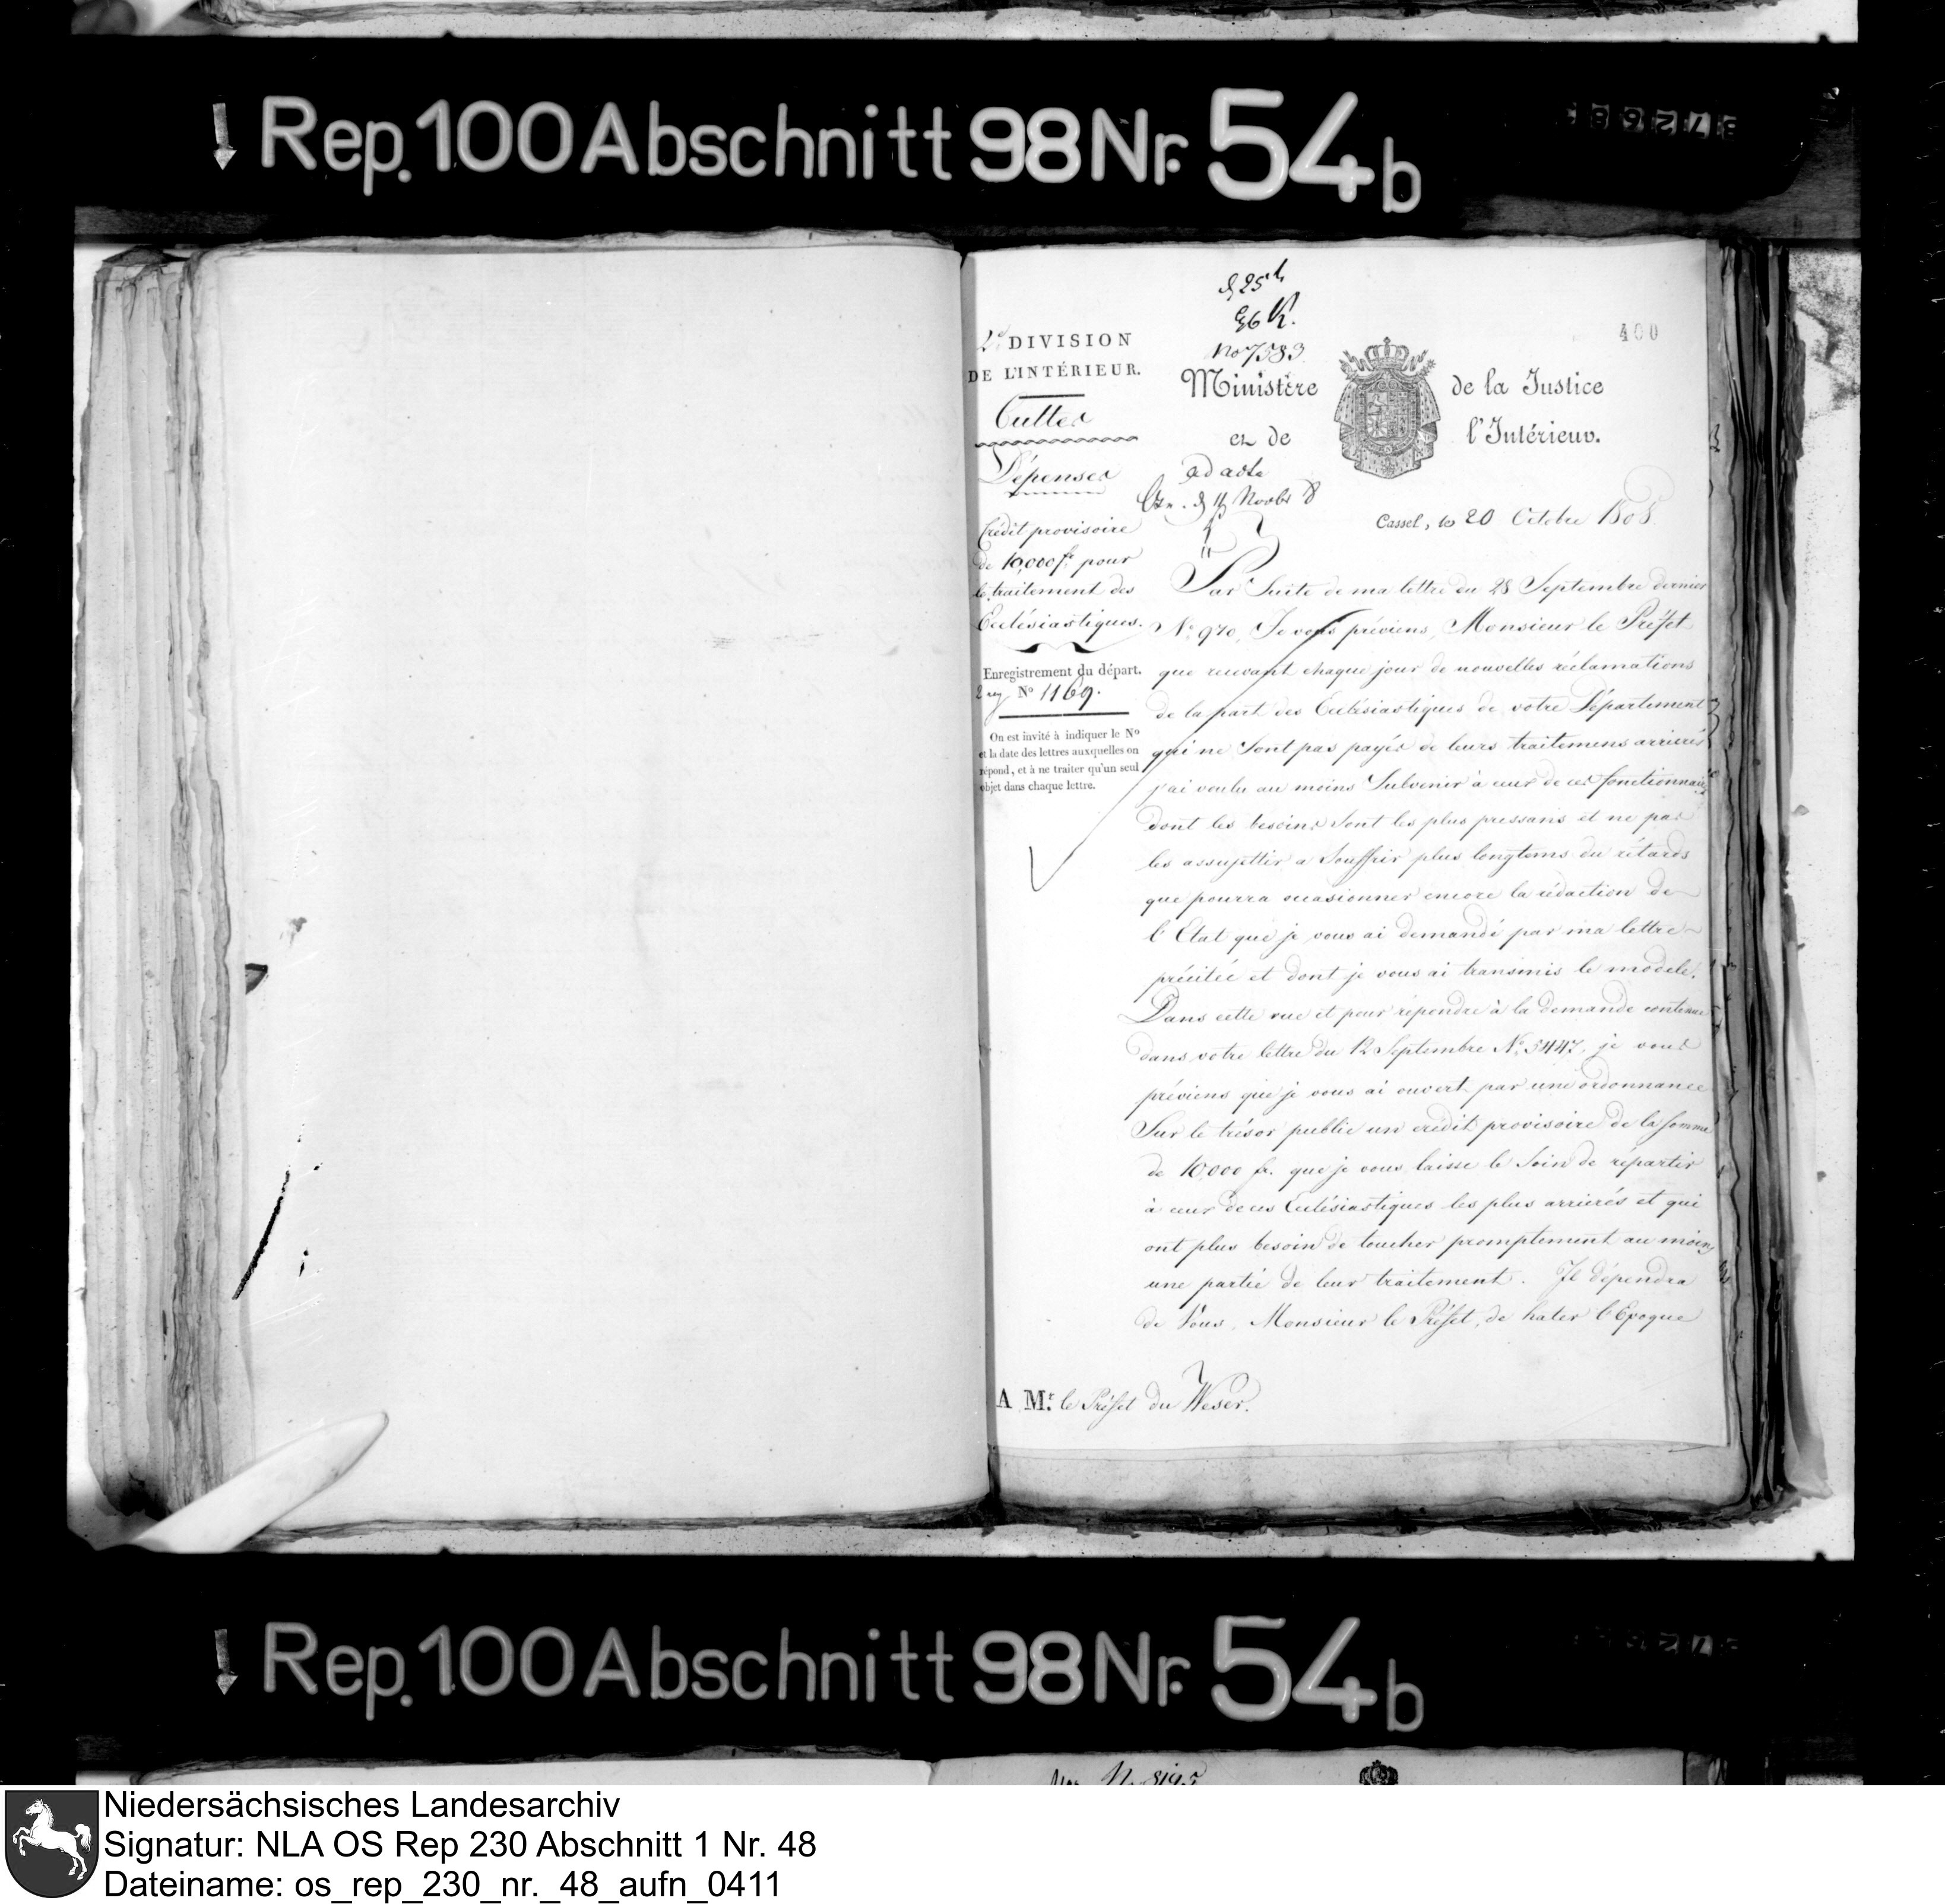 Rep. 100 Abschnitt 98 Nr. 54b
400
No 7583.
2e DIVISION
DE L'INTÉRIEUR.
Cultes
Dépenses
Crédit provisoire
de 10,000 fr. pour
le traitement des
Ecclésiastiques.
Enregistrement du départ.
2 reg No 1169.
On est invité à indiquer le No
et la date des lettres auxquelles on
répond, et à ne traiter qu'un seul
objet dans chaque lettre.
Ministère de la Justice
et de l'Intérieur.
ad acta
Cassel, le 20 Octobre 1808.
Par Suite de ma lettre du 28 Septembre dernier
No. 970, Je vous préviens, Monsieur le Préfet
que recevant chaque jour de nouvelles réclamations
de la part des Ecclésiastiques de votre Département
qui ne Sont pas payés de leurs traitemens arrierés
j'ai voulu au moins Subvenir à ceux de ces fonctionnaires
dont les besoins Sont les plus pressans et ne pas
les assujettir a Souffrir plus longtems du rétards
que pourra occasionner encore la rédaction de
l'Etat que je vous ai demandé par ma lettre
précitée et dont je vous ai transmis le modele.
Dans cette vue et pour répondre à la demande contenue
dans votre lettre du 12 Septembre No. 5447. je vous
préviens que je vous ai ouvert par une ordonnance
Sur le trésor public un crédit provisoire de la somme
de 10,000 fr. que je vous laisse le Soin de répartir
à ceux de ces Ecclésiastiques les plus arrierés et qui
ont plus besoin de toucher promptement au moins
une partie de leur traitement. Il dépendra
de Vous, Monsieur le Préfet, de hater l'Epoque
A Mr. le Préfet du Weser.
Rep. 100 Abschnitt 98 Nr. 54b
Niedersächsisches Landesarchiv
Signatur: NLA OS Rep 230 Abschnitt 1 Nr. 48
Dateiname: os_rep_230_nr._48_aufn_0411